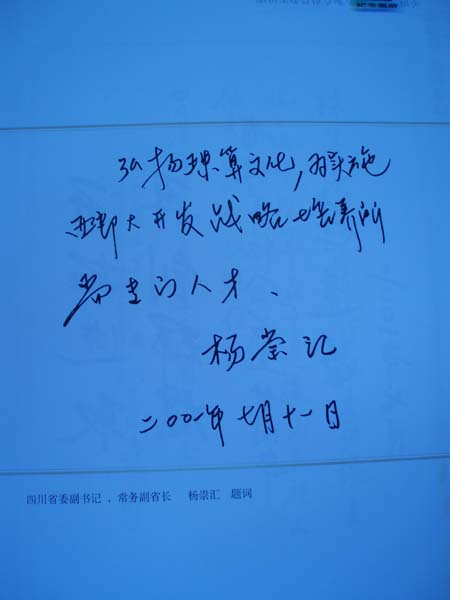 弘扬珠算文化，为实施
西部大开发战略培养所
需要的人才、
杨崇汇
二〇〇一年七月十一日
四川省委副书记、常务副省长 杨崇汇 题词